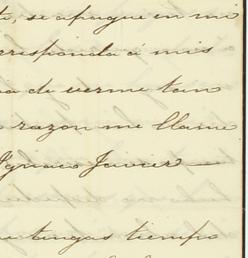 te, se apague en mi
responda á mis
a de verme tan
razon me llame
Ignacio Javier
tengas tiempo